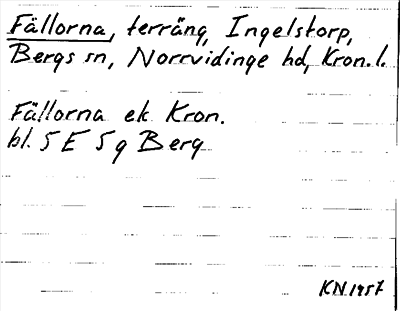 Fällorna, terräng, Ingelstorp,
Bergs sn, Norrvidinge hd, Kron. l.
Fällorna ek. Kron.
bl. 5 E 5 g Berg
KN 1957